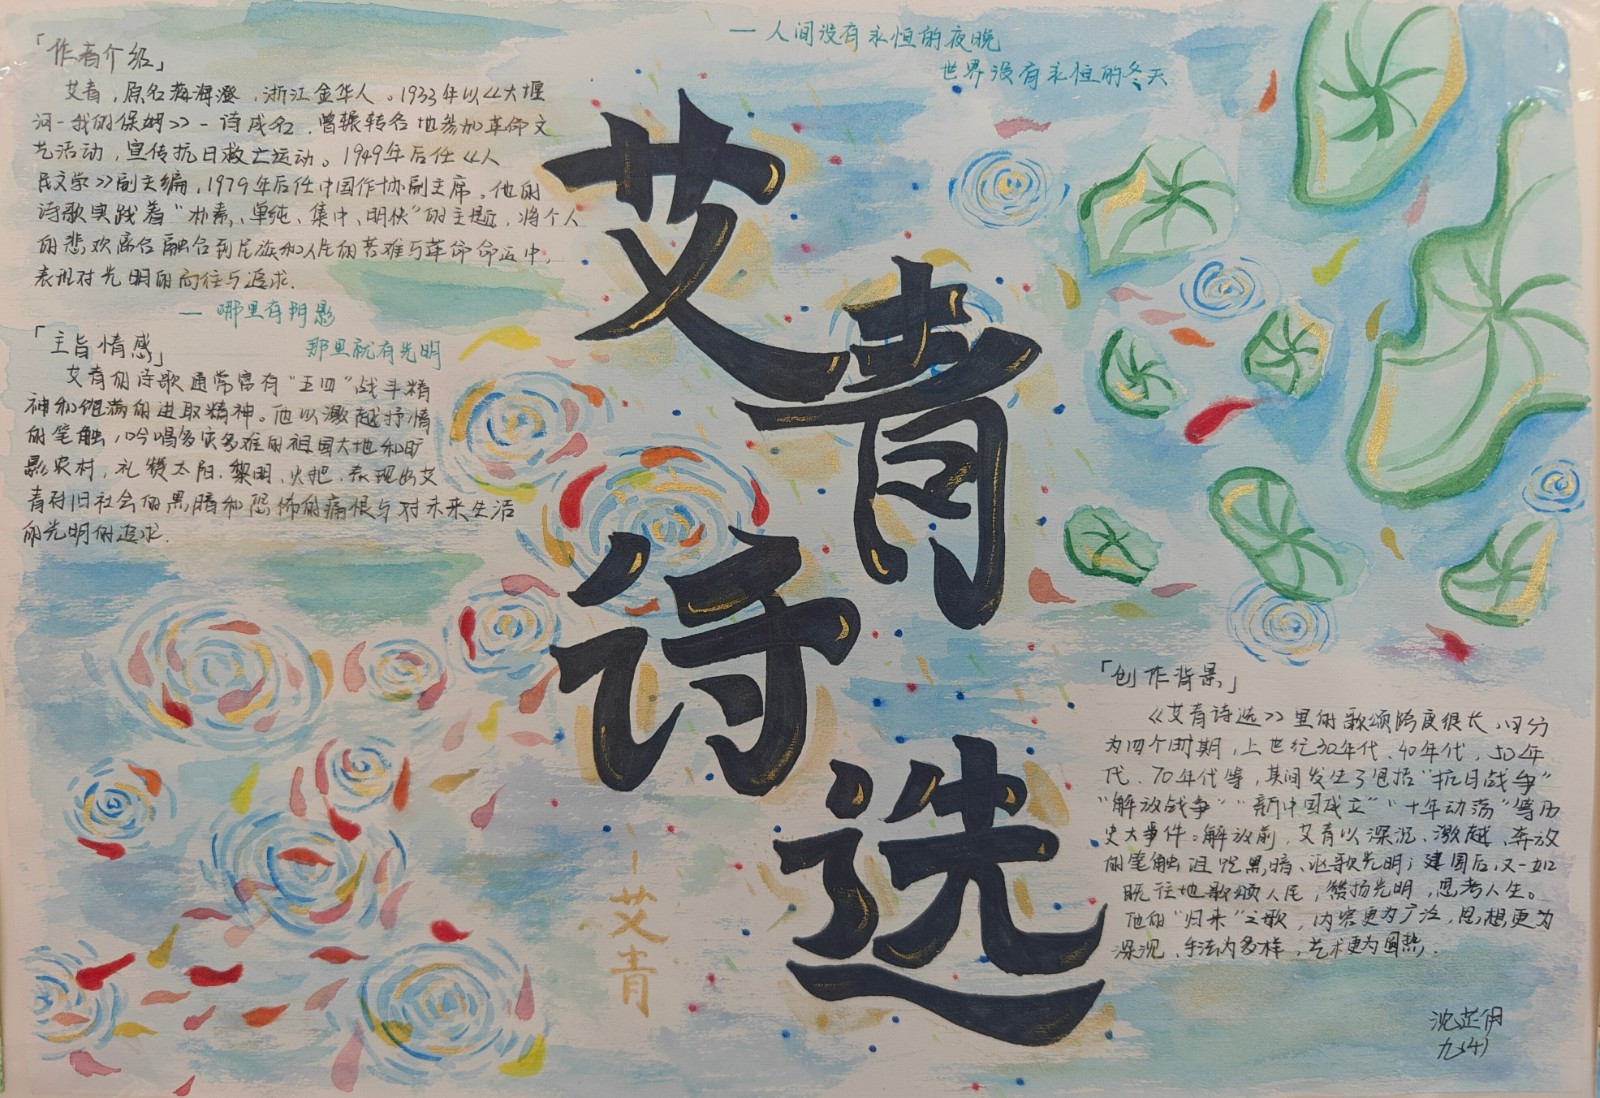 「作者介绍」
艾青，原名蒋海澄，浙江金华人。1933年以《大堰
河-我的保姆》一诗成名，曾辗转各地参加革命文
艺活动，宣传抗日救亡运动。1949年后任《人
民文学》副主编，1979年后任中国作协副主席。他的
诗歌实践着“朴素、单纯、集中、明快”的主题，将个人
的悲欢离合融合到民族和人民的苦难与革命命运中，
表现对光明的向往与追求.
— 哪里有阴影
那里就有光明
「主旨情感」
艾青的诗歌通常富有“五四”战斗精
神和饱满的进取精神。他以激越抒情
的笔触，吟唱多灾多难的祖国大地和旷
影农村，礼赞太阳、黎明、火把，表现出艾
青对旧社会的黑暗和恐怖的痛恨与对未来生活
的光明的追求.
— 人间没有永恒的夜晚
世界没有永恒的冬天
艾青
诗选
—艾青
「创作背景」
《艾青诗选》里的歌颂跨度很长，可分
为四个时期，上世纪30年代、40年代，50年
代、70年代等，其间发生了包括“抗日战争”
“解放战争”“新中国成立”“十年动荡”等历
史大事件。解放前，艾青以深沉、激越、奔放
的笔触诅咒黑暗、讴歌光明；建国后，又一如
既往地歌颂人民，發扬光明，思考人生。
他的“归来”之歌，内容更为广泛，思想更为
深沉、手法内多样，艺术更为圆熟.
沈芷
九(4)